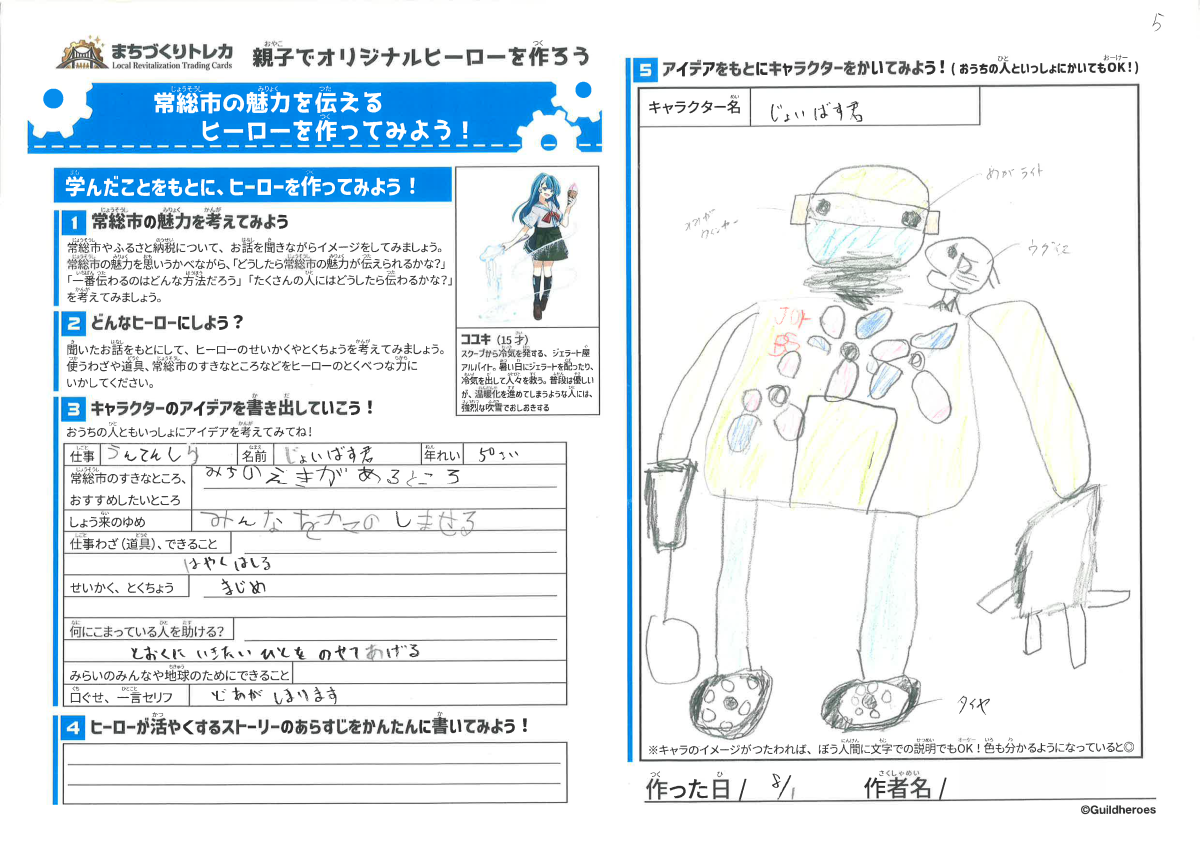 5
まちづくりトレカ
Local Revitalization Trading Cards
親子でオリジナルヒーローを作ろう
おやこ
つく
常総市の魅力を伝える
じょうそうし
みりょく
つた
ヒーローを作ってみよう！
つく
学んだことをもとに、ヒーローを作ってみよう！
1 常総市の魅力を考えてみよう
常総市やふるさと納税について、お話を聞きながらイメージをしてみましょう。
常総市の魅力を思いうかべながら、「どうしたら常総市の魅力が伝えられるかな？」
「一番伝わるのはどんな方法だろう」「たくさんの人にはどうしたら伝わるかな？」
を考えてみましょう。
2 どんなヒーローにしよう？
聞いたお話をもとにして、ヒーローのせいかくやとくちょうを考えてみましょう。
使うわざや道具、常総市のすきなところなどをヒーローのとくべつな力に
いかしてください。
ココユキ（15才）
スクープから冷気を発する、ジェラート屋
アルバイト。暑い日にジェラートを配ったり、
冷気を出して人々を救う。普段は優しい
が、温暖化を進めてしまうような人には、
強烈な吹雪でおしおきする
3 キャラクターのアイデアを書き出していこう！
おうちの人ともいっしょにアイデアを考えてみてね！
仕事 うんてんしゅ 名前 じょいばす君 年れい 50さい
常総市のすきなところ、
おすすめしたいところ
みちのえきがあるところ
しょう来のゆめ みんなをたのしませる
仕事わざ（道具）、できること
はやくはしる
せいかく、とくちょう まじめ
何にこまっている人を助ける？
とおくにいきたいひとをのせてあげる
みらいのみんなや地球のためにできること
口ぐせ、一言セリフ どあがしまります
4 ヒーローが活やくするストーリーのあらすじをかんたんに書いてみよう！
5 アイデアをもとにキャラクターをかいてみよう！（おうちの人といっしょにかいてもOK！）
キャラクター名 じょいばす君
めがライト
ウグイス
JOY
BS
タイヤ
※キャラのイメージがつたわれば、ぼう人間に文字での説明でもOK！色も分かるようになっていると◎
作った日 / 8/1 作者名 /
©Guildheroes